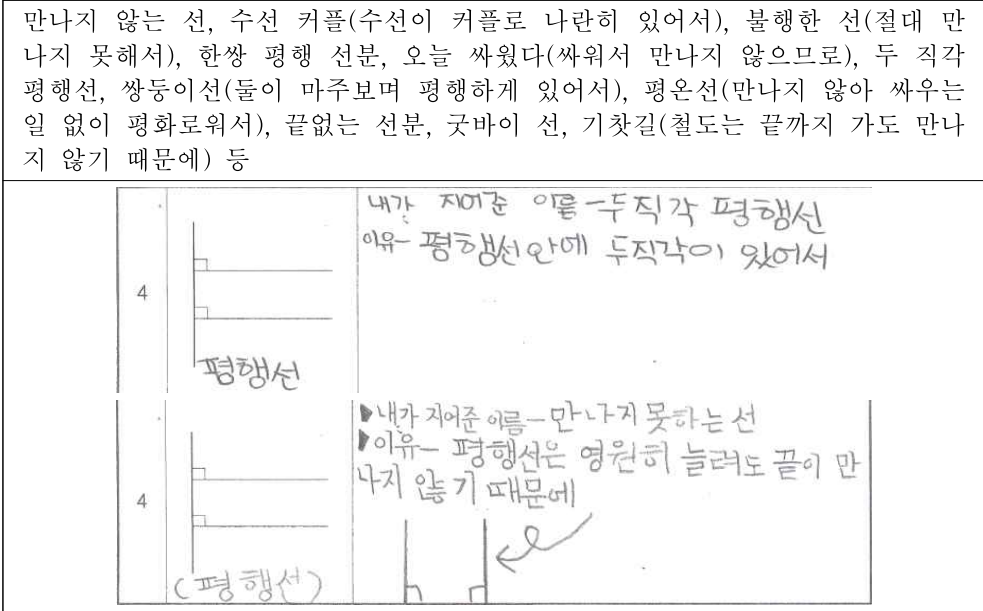 만나지 않는 선, 수선 커플(수선이 커플로 나란히 있어서), 불행한 선(절대 만
나지 못해서), 한쌍 평행 선분, 오늘 싸웠다(싸워서 만나지 않으므로), 두 직각
평행선, 쌍둥이선(둘이 마주보며 평행하게 있어서), 평온선(만나지 않아 싸우는
일 없이 평화로워서), 끝없는 선분, 굿바이 선, 기찻길(철도는 끝까지 가도 만나
지 않기 때문에) 등
내가 지어준 이름-두직각 평행선
이유- 평행선 안에 두직각이 있어서
4
평행선
▶내가 지어준 이름-만나지 못하는 선
▶이유- 평행선은 영원히 늘려도 끝이 만
나지 않기 때문에
4
(평행선)